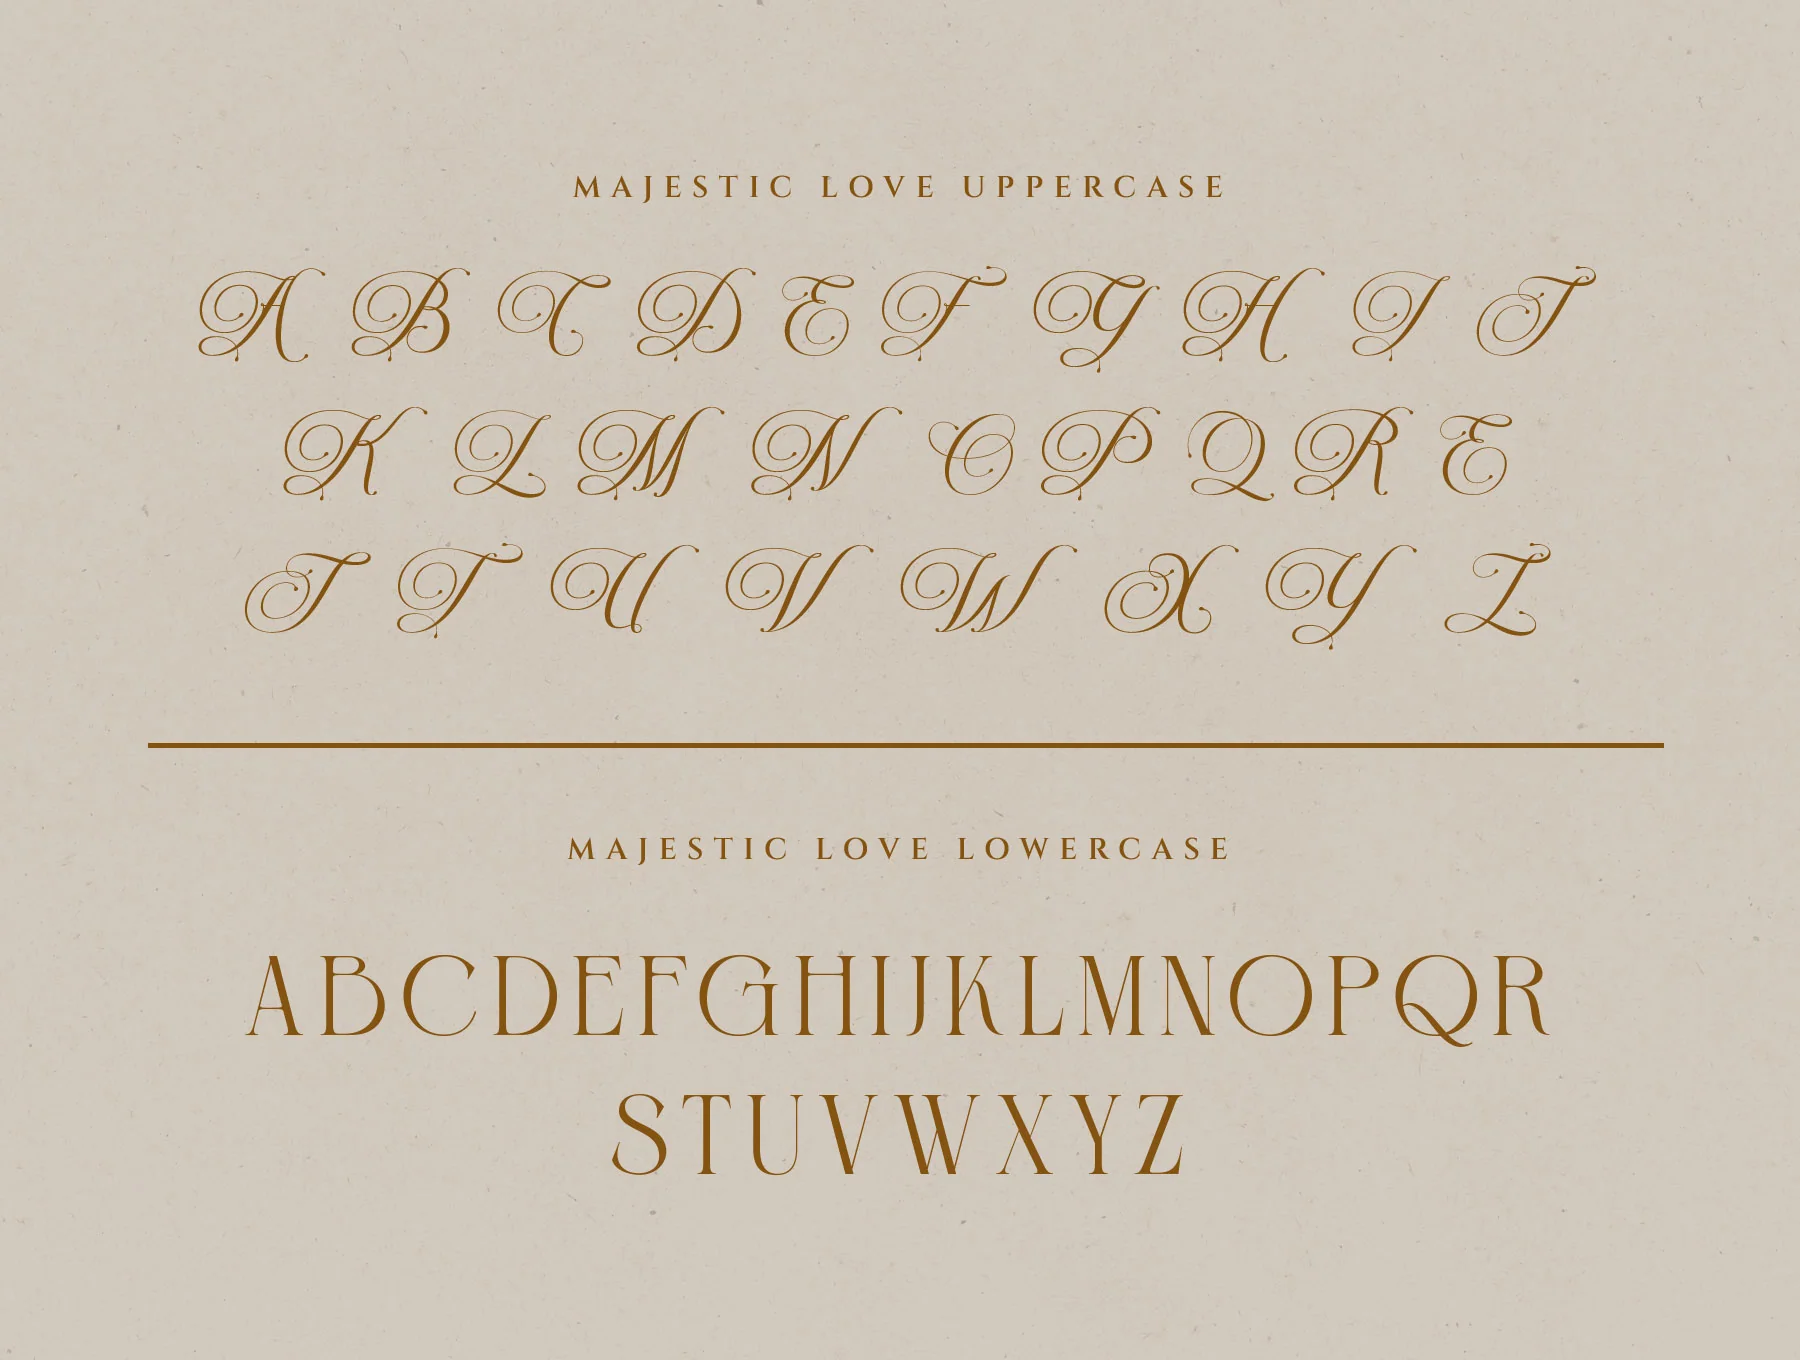 MAJESTIC LOVE UPPERCASE
A B C D E F G H I J
K L M N O P Q R E
J T U V W X Y Z
MAJESTIC LOVE LOWERCASE
ABCDEFGHIJKLMNOPQR
STUVWXYZ